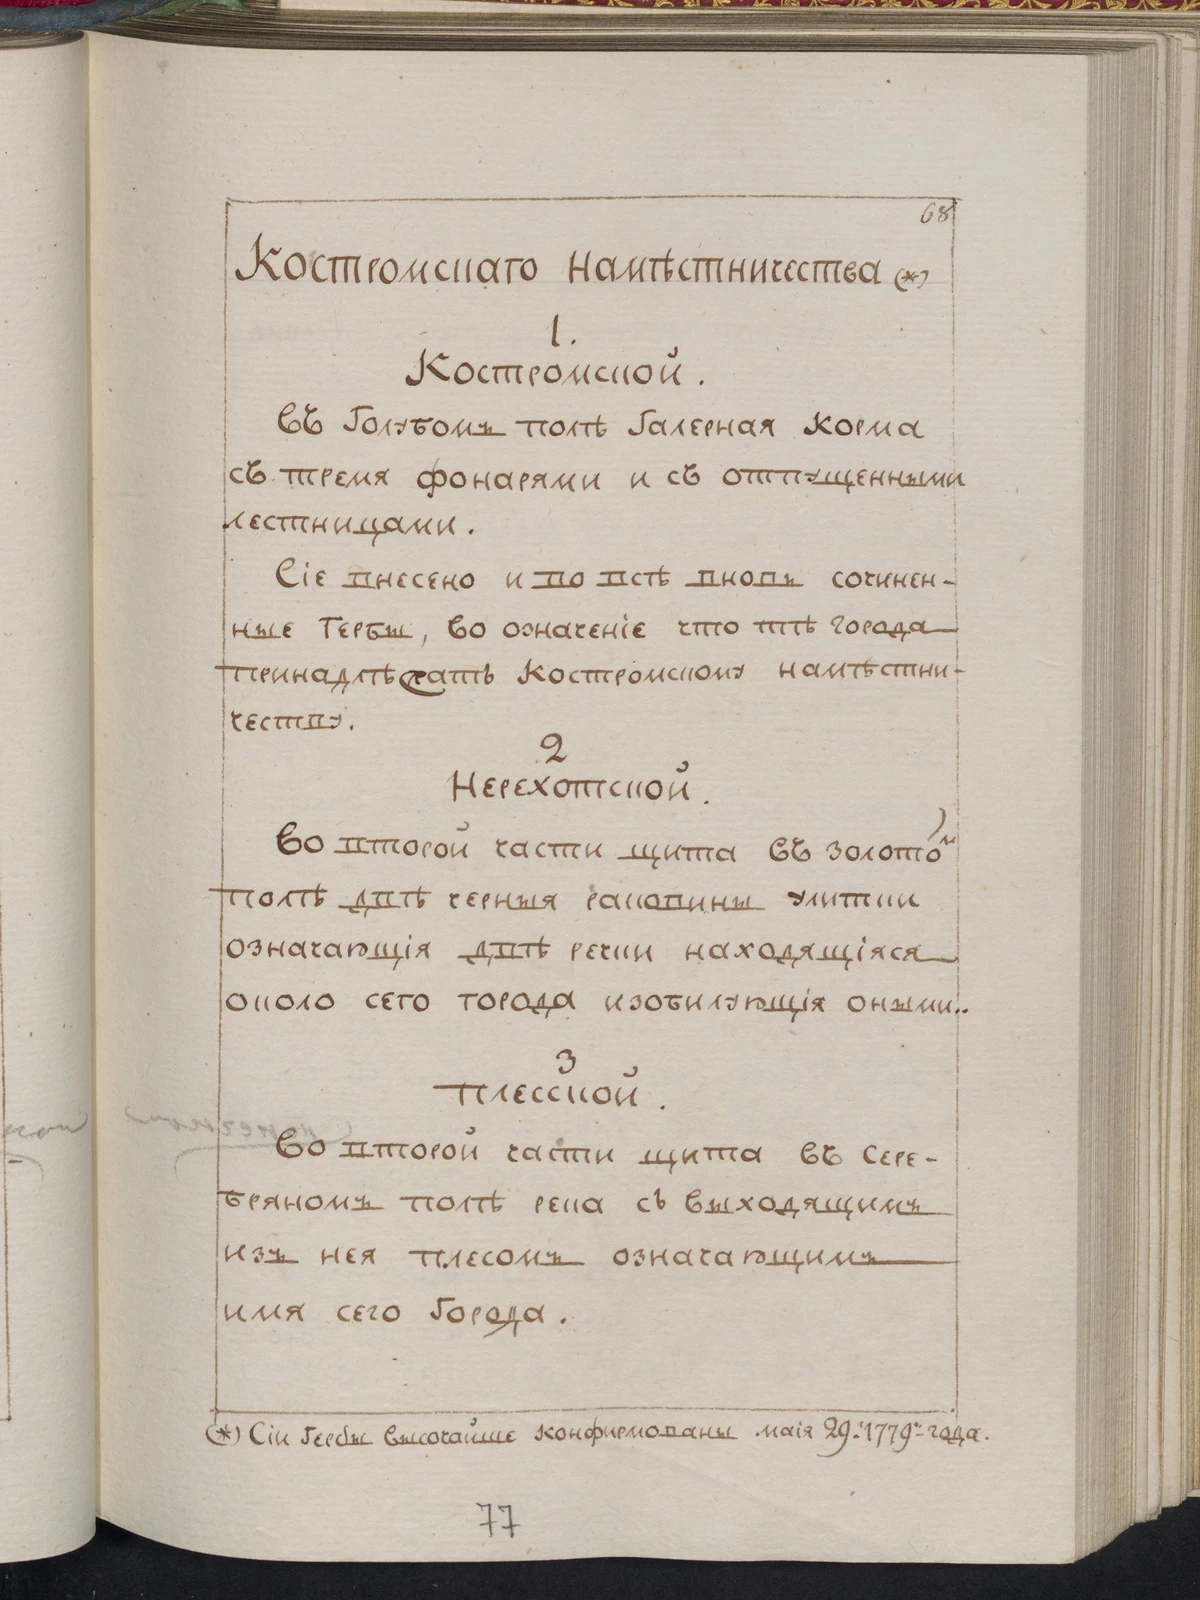 68
Костромскаго Намѣстничества (*)
1.
Костромской.
Въ Голубомъ полѣ Галерная Корма
съ тремя фонарями и съ отпущенными
лестницами.
Сіе внесено и во всѣ вновь сочинен-
ные Гербы, во означеніе что тѣ города
принадлѣжатъ Костромскому намѣстни-
честву.
2
Нерехотской.
Во второй части щита въ золотом
полѣ двѣ черныя раковины улитки
означающія двѣ речки находящіяся
около сего города изобилующія оными..
3
Плесской.
Во второй части щита въ Сере-
бряномъ полѣ река съ выходящимъ
изъ нея плесомъ означающимъ
имя сего Города.
(*) Сіи Гербы высочайше конфирмованы маія 29. 1779го года.
77